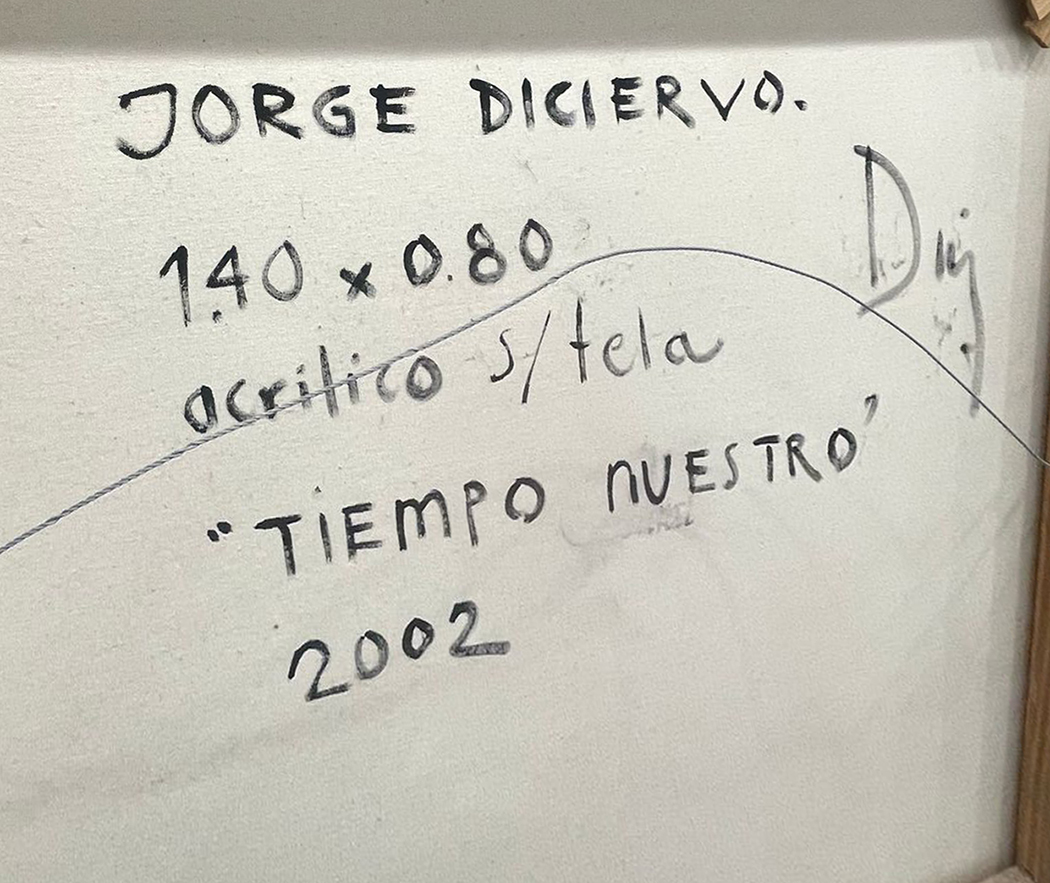 JORGE DICIERVO.
1.40 x 0.80
acrilico s/tela
"TIEMPO NUESTRO"
2002